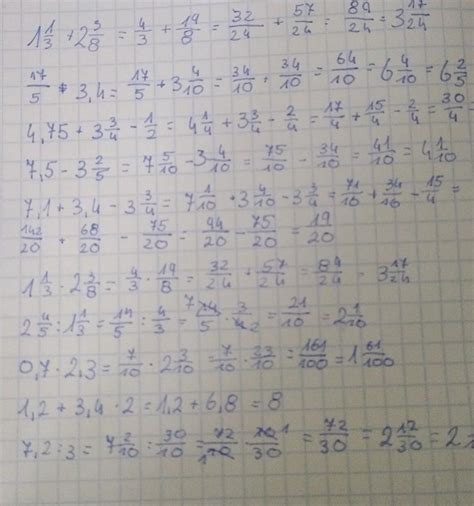 1 1/3 + 2 3/8 = 4/3 + 19/8 = 32/24 + 57/24 = 89/24 = 3 17/24
17/5 + 3,4 = 17/5 + 3 4/10 = 34/10 + 34/10 = 64/10 = 6 4/10 = 6 2/5
4,75 + 3 3/4 - 1/2 = 4 1/4 + 3 3/4 - 2/4 = 17/4 + 15/4 - 2/4 = 30/4 -
7,5 - 3 2/5 = 7 5/10 - 3 4/10 = 75/10 - 34/10 = 41/10 = 4 1/10
7,1 + 3,4 - 3 3/4 = 7 1/10 + 3 4/10 - 3 3/4 = 71/10 + 34/10 - 15/4 =
142/20 + 68/20 - 75/20 = 94/20 - 75/20 = 19/20
1 1/3 · 2 3/8 = 4/3 · 19/8 = 32/24 + 57/24 = 84/24 - 3 17/24
2 4/5 : 1 1/3 = 14/5 : 4/3 = 7 14/5 · 3/4 2 = 21/10 = 2 1/10
0,7 · 2,3 = 7/10 · 2 3/10 = 7/10 · 23/10 = 161/100 = 1 61/100
1,2 + 3,4 · 2 = 1,2 + 6,8 = 8
7,2 : 3 = 7 2/10 : 30/10 = 72/10 1 · 10/30 1 = 72/30 = 2 12/30 =